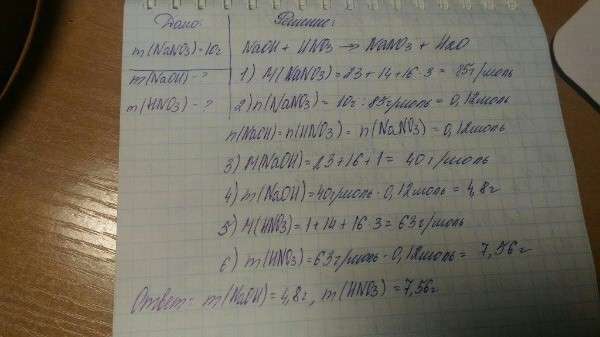 Дано:
Решение:
m(NaNO3)=10г
m(NaOH) - ?
m(HNO3) - ?
NaOH + HNO3 → NaNO3 + H2O
1) M(NaNO3) = 23 + 14 + 16·3 = 85г/моль
2) n(NaNO3) = 10г : 85г/моль = 0,12моль
n(NaOH) = n(HNO3) = n(NaNO3) = 0,12моль
3) M(NaOH) = 23+16+1 = 40г/моль
4) m(NaOH) = 40г/моль · 0,12моль = 4,8г
5) M(HNO3) = 1+14+16·3 = 63г/моль
6) m(HNO3) = 63г/моль · 0,12моль = 7,56г
Ответ: m(NaOH) = 4,8г, m(HNO3) = 7,56г